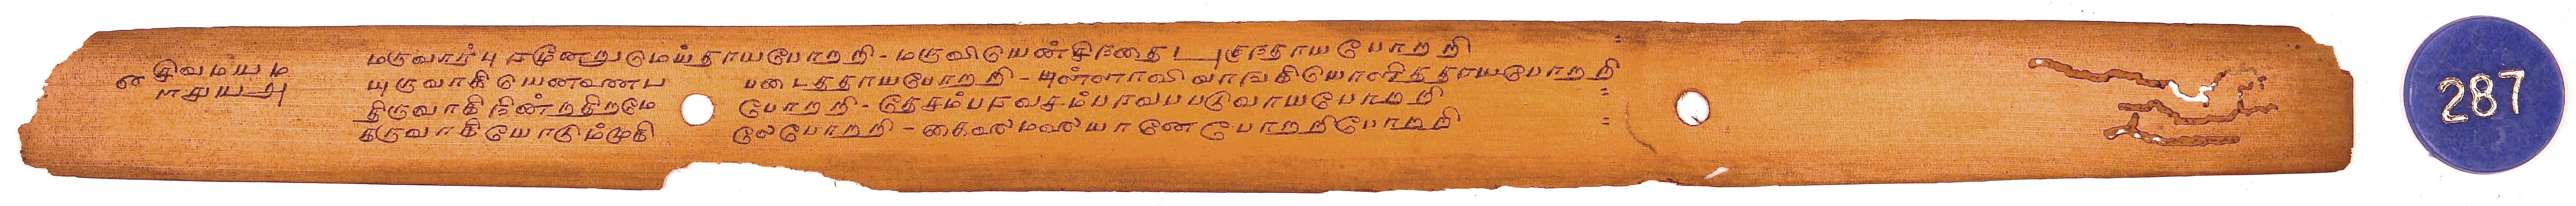 சிவமயம
மருவார்பு ரமூனறெயதாயபோறறி - மருவியெனசிநதைபுகுநதாயபோறறி
யுருவாகியெனனைப படைததாயபோறறி - யுள்ளாவிவாஙகியொளிததாயபோறறி
திருவாகிநின்றதிறமே போறறி - தேசமபரவபபடுவாயபோறறி
கருவாகியோடும்முகி லேபோறறி - கைலைமலையானேபோறறிபோறறி
287